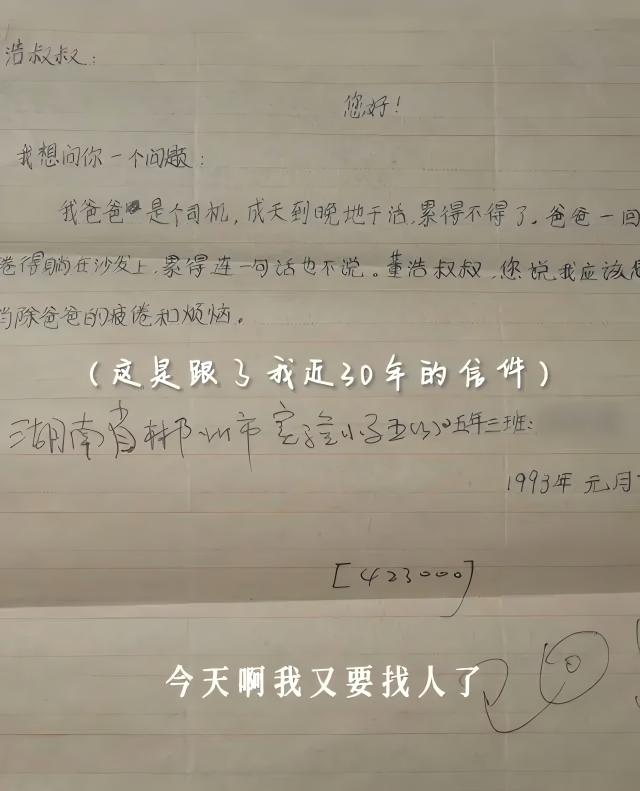 浩叔叔：
您好！
我想问你一个问题：
我爸爸是个司机，成天到晚地干活，累得不得了。爸爸一回
倦得躺在沙发上，累得连一句话也不说。董浩叔叔，您说我应该怎
消除爸爸的疲倦和烦恼。
（这是跟了我近30年的信件）
湖南省郴州市实验小学五(3) 五年三班：
1993年 元月
[423000]
今天啊我又要找人了